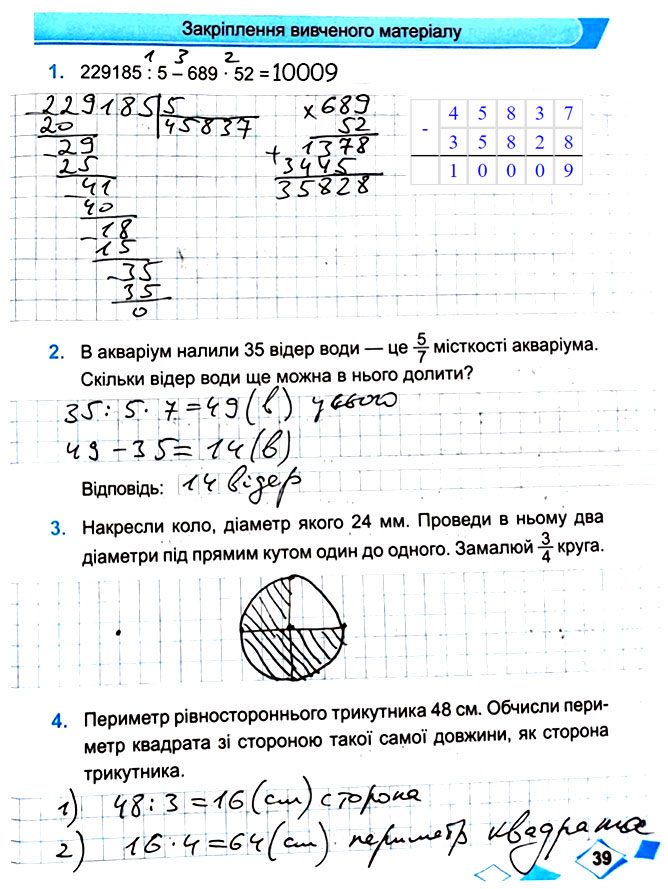 Закріплення вивченого матеріалу
1 3 2
1. 229185 : 5 – 689 · 52 = 10009
229185 5
20 45837
29
25
41
40
18
15
35
35
0
× 689
52
+ 1378
3445
35828
4 5 8 3 7
- 3 5 8 2 8
1 0 0 0 9
2. В акваріум налили 35 відер води — це 5/7 місткості акваріума.
Скільки відер води ще можна в нього долити?
35 : 5 · 7 = 49 (в) усього
49 – 35 = 14 (в)
Відповідь: 14 відер
3. Накресли коло, діаметр якого 24 мм. Проведи в ньому два
діаметри під прямим кутом один до одного. Замалюй 3/4 круга.
4. Периметр рівностороннього трикутника 48 см. Обчисли пери-
метр квадрата зі стороною такої самої довжини, як сторона
трикутника.
1) 48 : 3 = 16 (см) сторона
2) 16 · 4 = 64 (см) периметр квадрата
39